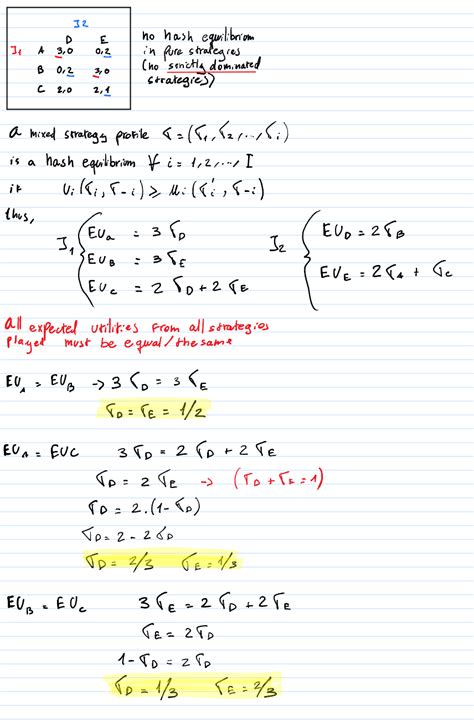 I2
D E
I1 A 3,0 0,2
B 0,2 3,0
C 2,0 2,1
no Nash equilibriom
in pure strategies
(no strictly dominated
strategies)
a mixed strategy profile σ = (σ1, σ2, .., σi)
is a Nash equilibrium ∀ i = 1,2,..., I
if Ui (σi, σ-i) ⩾ ui (σ'i, σ-i)
thus,
I1 { EUa = 3 σD
EUB = 3σE
EUc = 2 σD + 2 σE
I2 { EUD = 2σB
EUE = 2σA + σc
all expected utilities from all strategies
played must be equal/the same
EUA = EUB → 3 σD = 3 σE
σD = σE = 1/2
EUA = EUC 3σD = 2 σD + 2 σE
σD = 2 σE → (σD + σE = 1)
σD = 2.(1-σD)
σD = 2 - 2σD
σD = 2/3 σE = 1/3
EUB = EUc 3σE = 2σD + 2σE
σE = 2σD
1-σD = 2σD
σD = 1/3 σE = 2/3